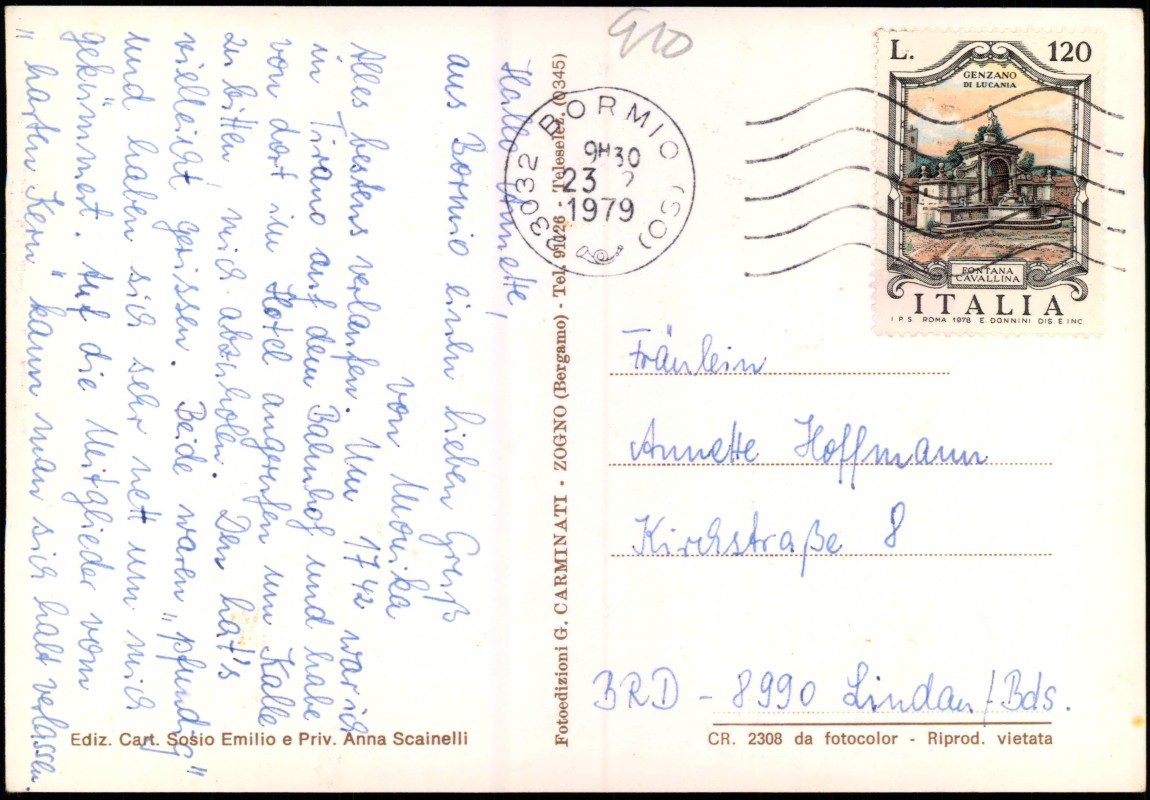 Hallo Annette,
aus Bormio einen lieben Gruß
von Monika
Alles bestens verlaufen. Um 17 42 war ich
in Tirano auf dem Bahnhof und habe
von dort im Hotel angerufen um Kalle
zu bitten mich abzuholen. Den hat's
vielleicht gerissen. Beide waren „pfundig"
und haben sich sehr nett um mich
gekümmert. Auf die Mitglieder vom
„harten Kern" kann man sich halt verlassen.
Ediz. Cart. Sosio Emilio e Priv. Anna Scainelli
Fotoedizioni G. CARMINATI - ZOGNO (Bergamo) - Tel. 91026 - Teleselez. (0345)
23032 BORMIO (SO)
9H30
23
1979
L. 120
GENZANO
DI LUCANIA
FONTANA
CAVALLINA
ITALIA
I.P.S. ROMA 1978 E. DONNINI DIS. E INC.
Fräulein
Annette Hoffmann
Kirchstraße 8
BRD - 8990 Lindau/Bds.
CR. 2308 da fotocolor - Riprod. vietata